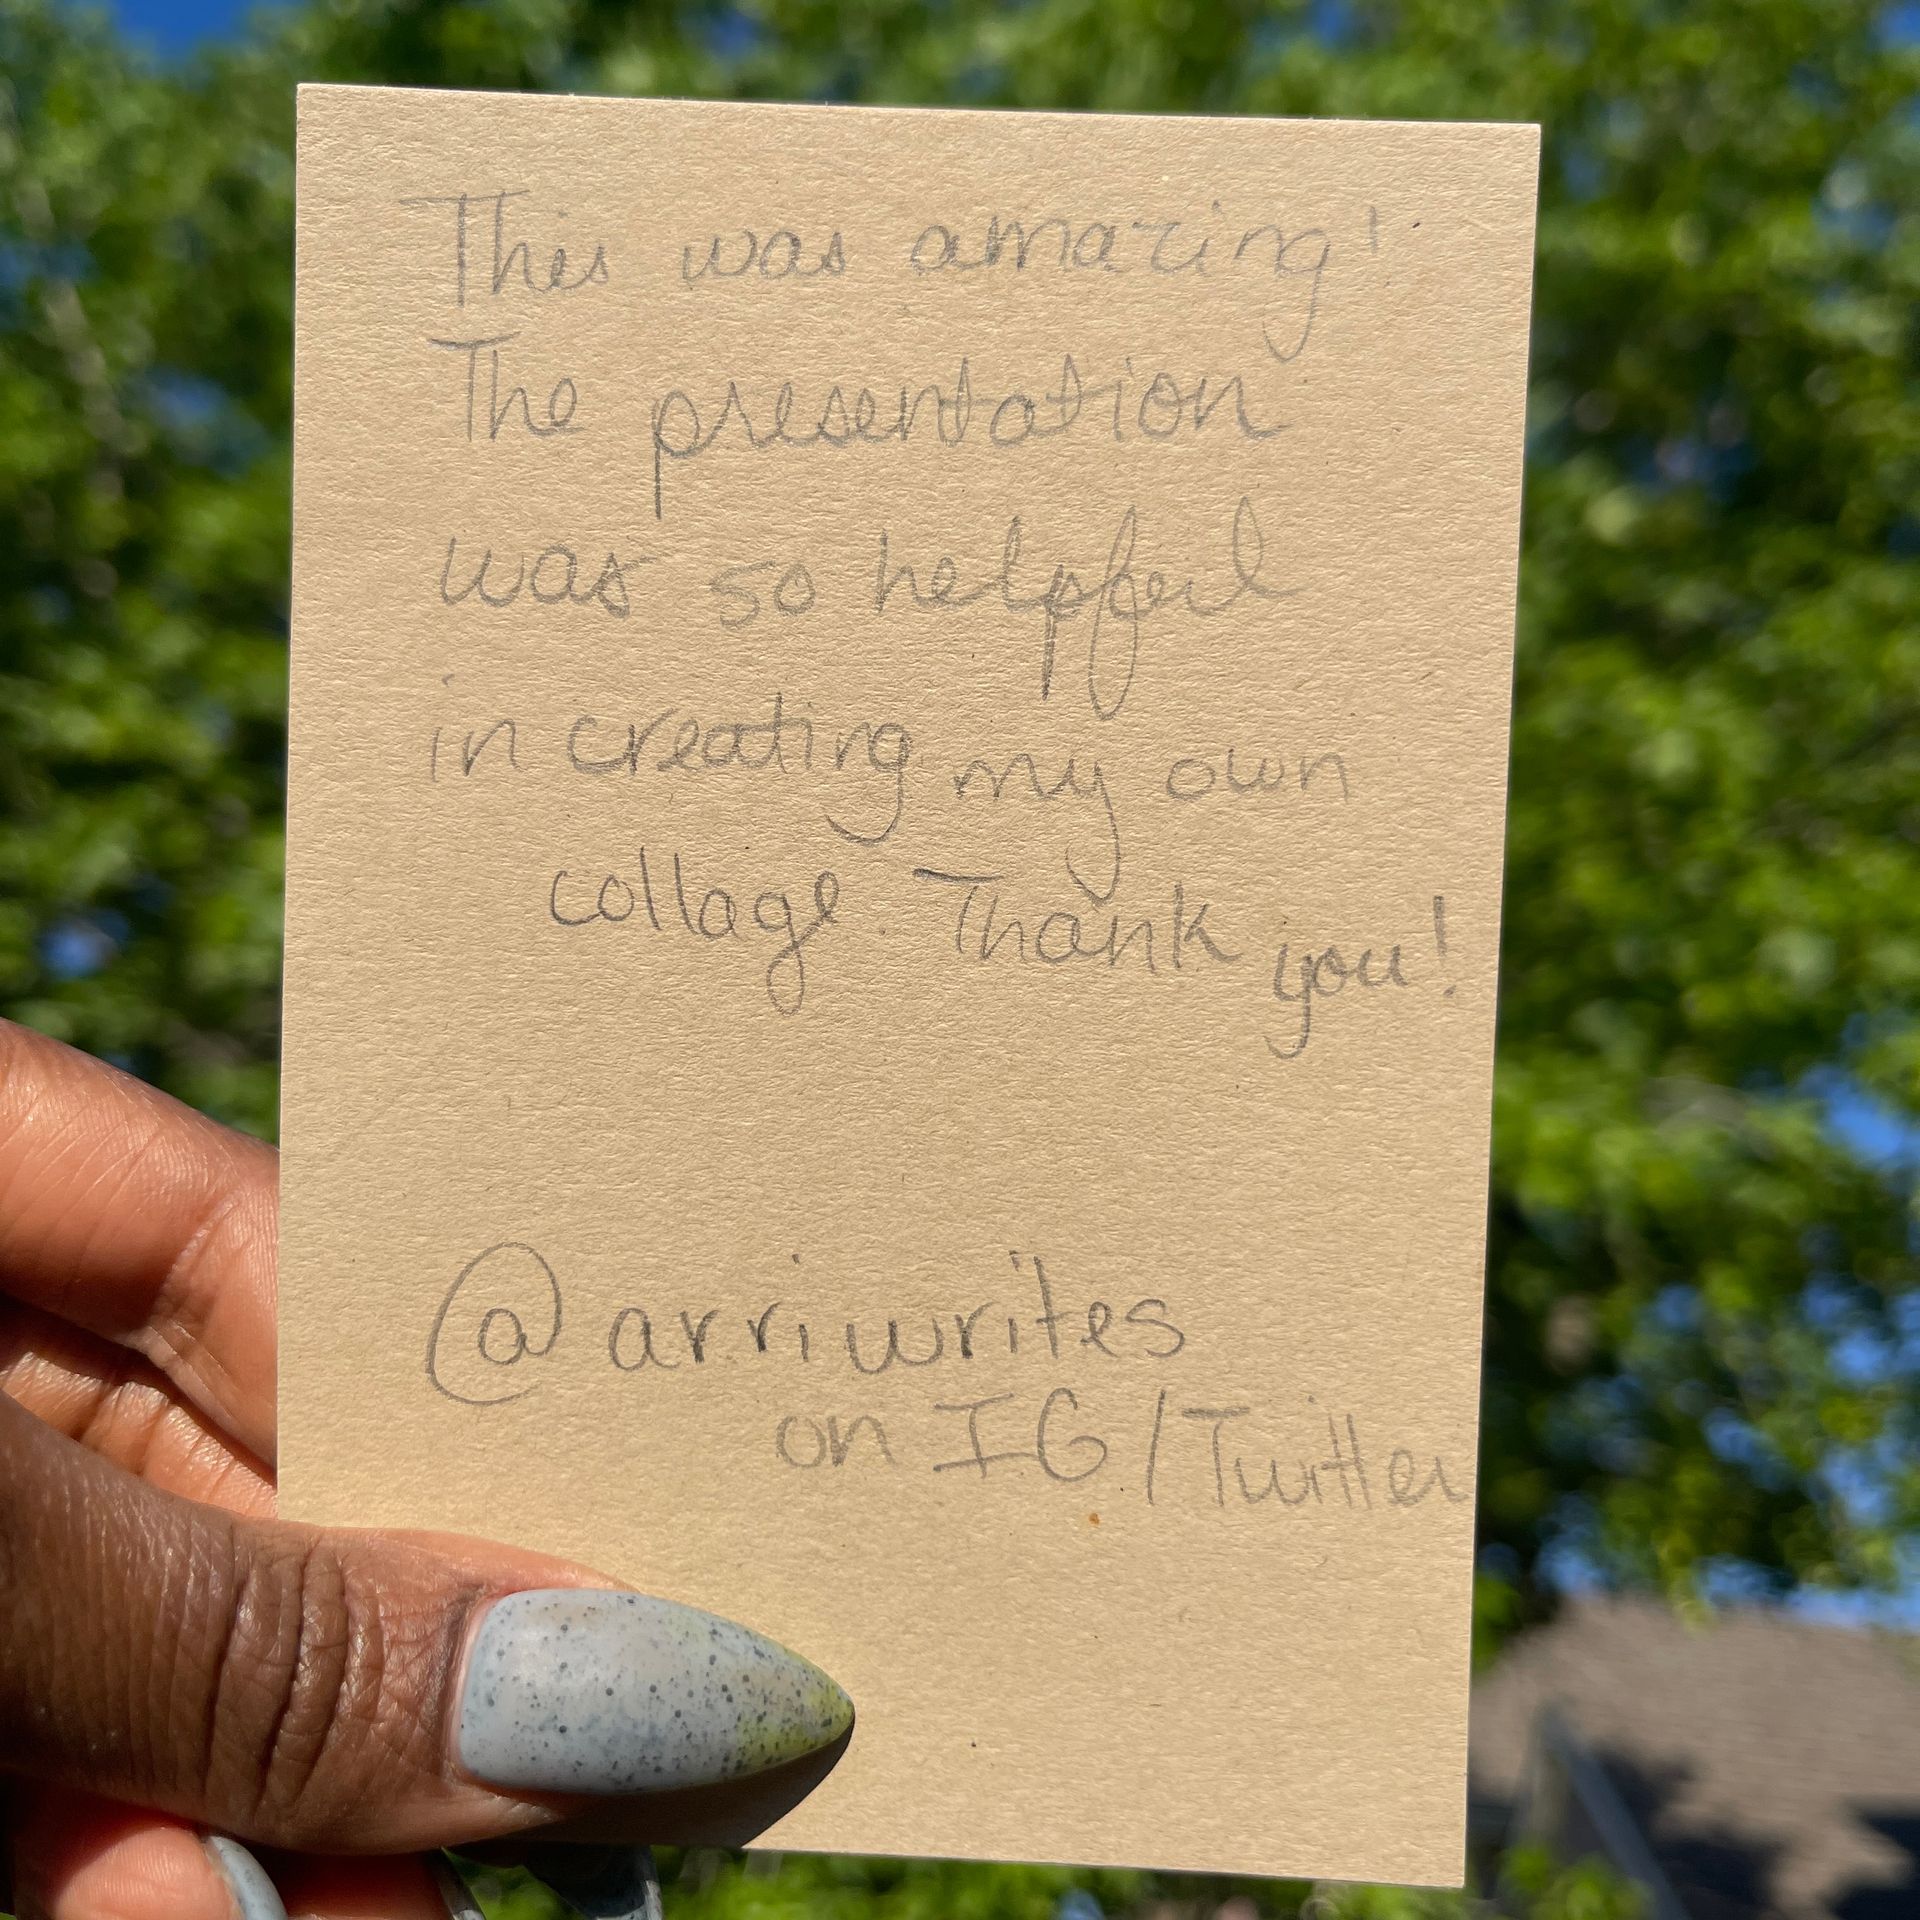 This was amazing!
The presentation
was so helpful
in creating my own
collage. Thank you!
@arriwrites
on IG/Twitter